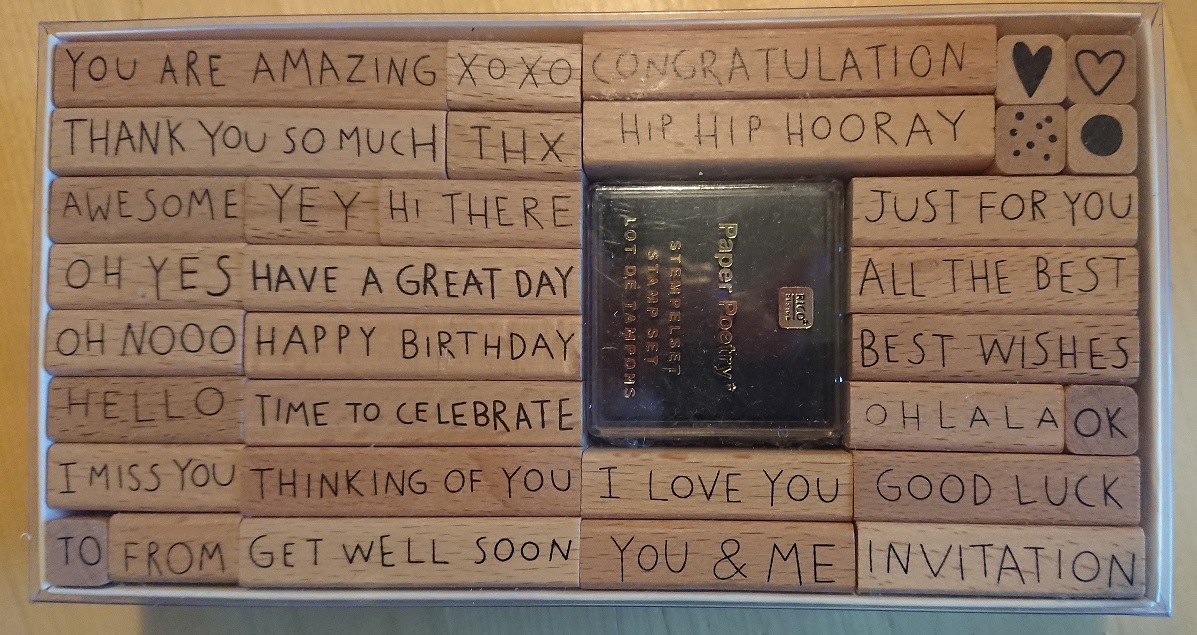 YOU ARE AMAZING XOXO CONGRATULATION
THANK YOU SO MUCH THX HIP HIP HOORAY
AWESOME YEY HI THERE JUST FOR YOU
OH YES HAVE A GREAT DAY ALL THE BEST
OH NOOO HAPPY BIRTHDAY BEST WISHES
HELLO TIME TO CELEBRATE OHLALA OK
I MISS YOU THINKING OF YOU I LOVE YOU GOOD LUCK
TO FROM GET WELL SOON YOU & ME INVITATION
RICO
Paper Poetry
STEMPELSET
STAMP SET
LOT DE TAMPONS